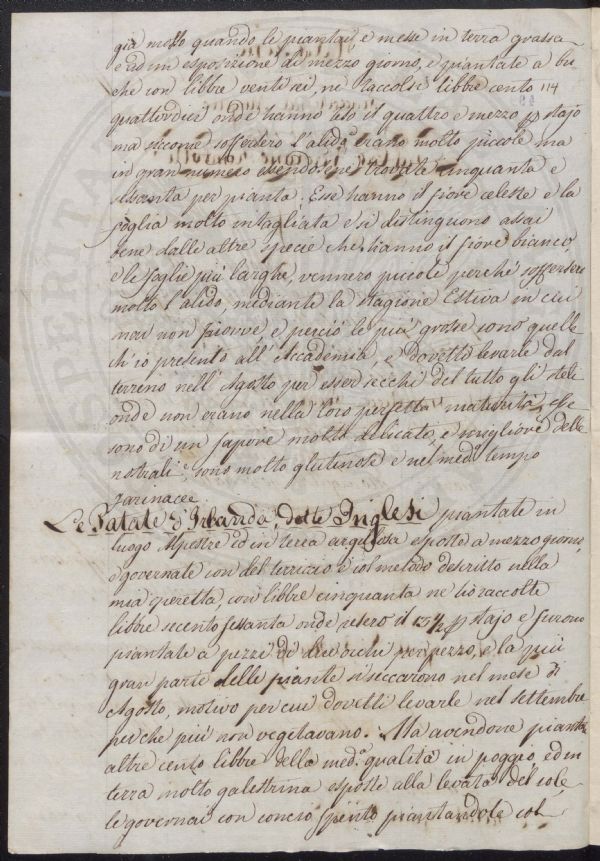 già molto quando le piantai e messe in terra grassa
ed in esposizione di mezzo giorno, e piantate a bu
che con libbre venti sei, ne raccolsi libbre cento 114
quattordici onde hanno reso il quattro e mezzo p stajo
ma siccome soffersero l'alido erano molto piccole ma
in gran numero essendosene trovate cinquanta e
sessanta per pianta. Esse hanno il fiore celeste e la
foglia molto intagliata e si distinguono assai
bene dalle altre specie che hanno il fiore bianco,
e le foglie più larghe, vennero piccole perché soffersero
molto l'alido, mediante la stagione Estiva in cui
mai non piovve e perciò le più grosse sono quelle
ch'io presento all'Accademia, e dovetti levarle dal
terreno nell'Agosto per esser secchi del tutto gli steli
onde non erano nella loro perfetta maturità, esse
sono di un sapore molto delicato, e migliore delle
nostrali, sono molto glutinose e nel med.o tempo
farinacee.
Le Patate d'Irlanda, dette Inglesi piantate in
luogo Alpestre ed in terra argillosa esposte a mezzo giorno,
e governate con del terrizio e col metodo descritto nella
mia operetta, con libbre cinquanta ne ho raccolte
libbre secento sessanta onde resero il 13 1/5 p stajo e furono
piantate a pezzi di due occhi per pezzo, e la più
gran parte delle piante si seccarono nel mese di
Agosto, motivo per cui dovetti levarle nel settembre
perché più non vegetavano. Ma avendone piantate
altre cento libbre della med.a qualità in poggio, ed in
terra molto galestrina esposte alla levata del sole
le governai con concio spento piantandole col